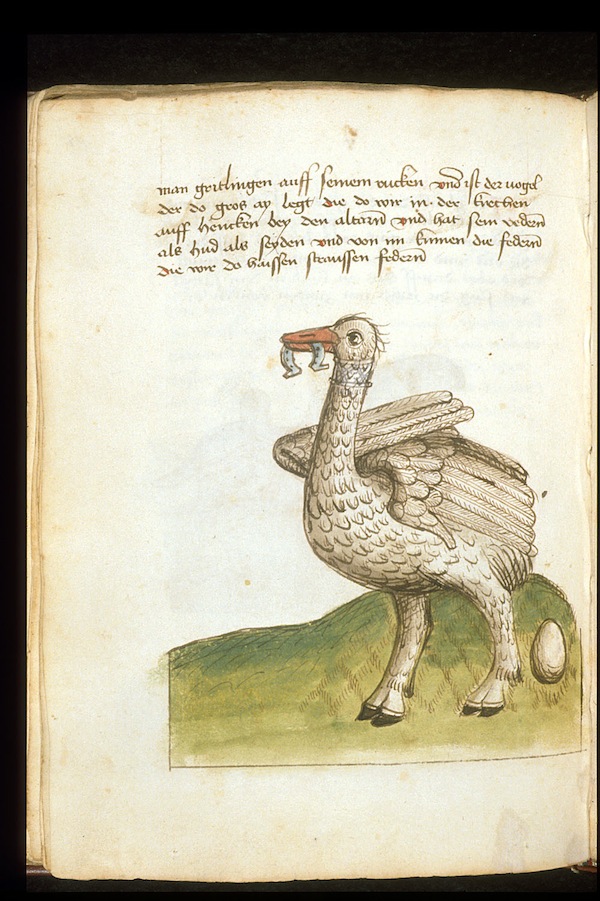 man geitlingen auff seinem rucken vnd ist der uogel
der do gros ay legt die do wir in der kirchen
auff hencken bey den altarn vnd hat sein vedern
als lind als seyden vnd von im kumen die federn
die wir do haissen straussen federn